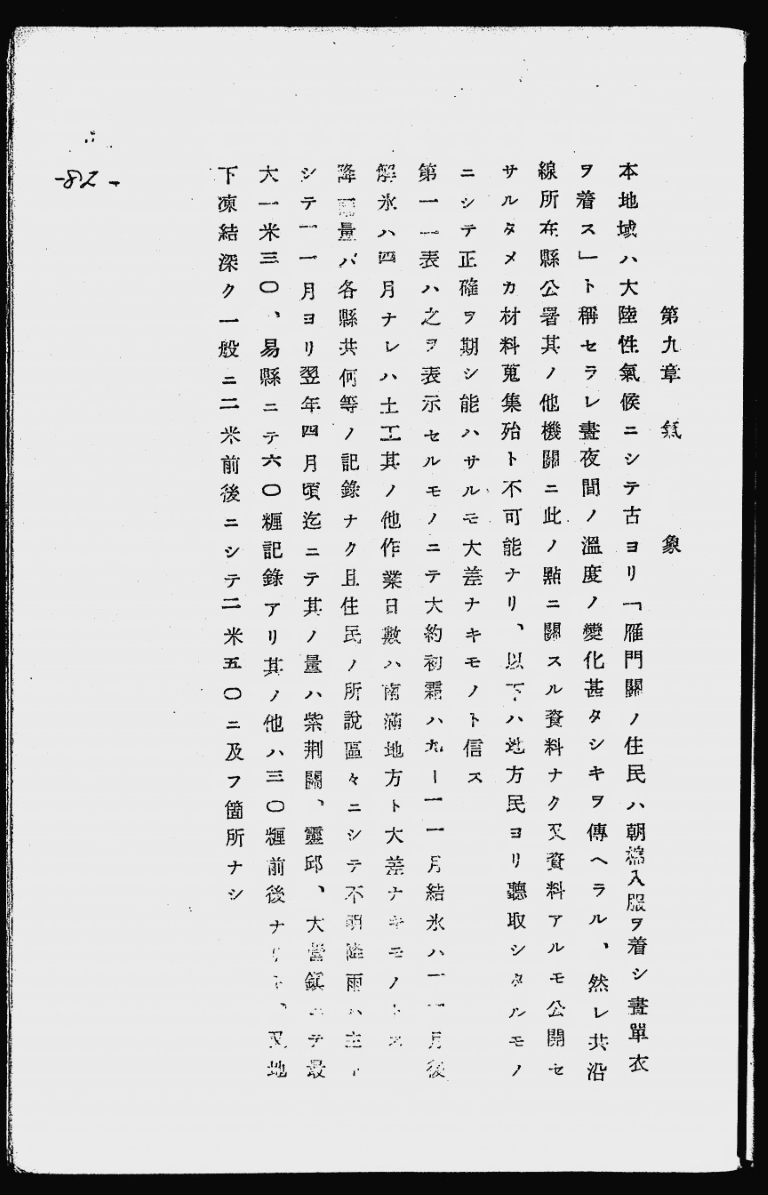 第九章 氣象
本地域ハ大陸性氣候ニシテ古ヨリ「雁門關ノ住民ハ朝棉入服ヲ着シ晝單衣
ヲ着ス」ト稱セラレ晝夜間ノ溫度ノ變化甚タシキヲ傳ヘラル、然レ共沿
線所在縣公署其ノ他機關ニ此ノ點ニ關スル資料ナク又資料アルモ公開セ
サルタメカ材料蒐集殆ト不可能ナリ、以下ハ地方民ヨリ聽取シタルモノ
ニシテ正確ヲ期シ能ハサルモ大差ナキモノト信ス
第一一表ハ之ヲ表示セルモノニテ大約初霜ハ九ー一一月結氷ハ一一月後
解氷ハ四月ナレハ土工其ノ他作業日數ハ南滿地方ト大差ナキモノトス
降雨量ハ各縣共何等ノ記錄ナク且住民ノ所說區々ニシテ不明降雨ハ主ト
シテ一一月ヨリ翌年四月頃迄ニテ其ノ量ハ紫荆關、靈邱、大營鎭ニテ最
大一米三〇、易縣ニテ六〇糎記錄アリ其ノ他ハ三〇糎前後ナリト、又地
下凍結深ク一般ニ二米前後ニシテ二米五〇ニ及フ箇所ナシ
-82-